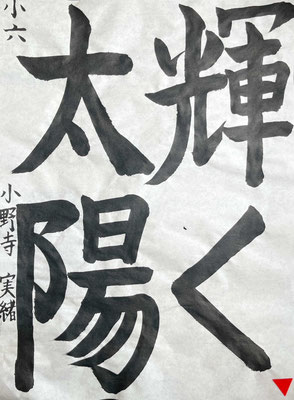 輝く
太陽
小六
小野寺 実緒